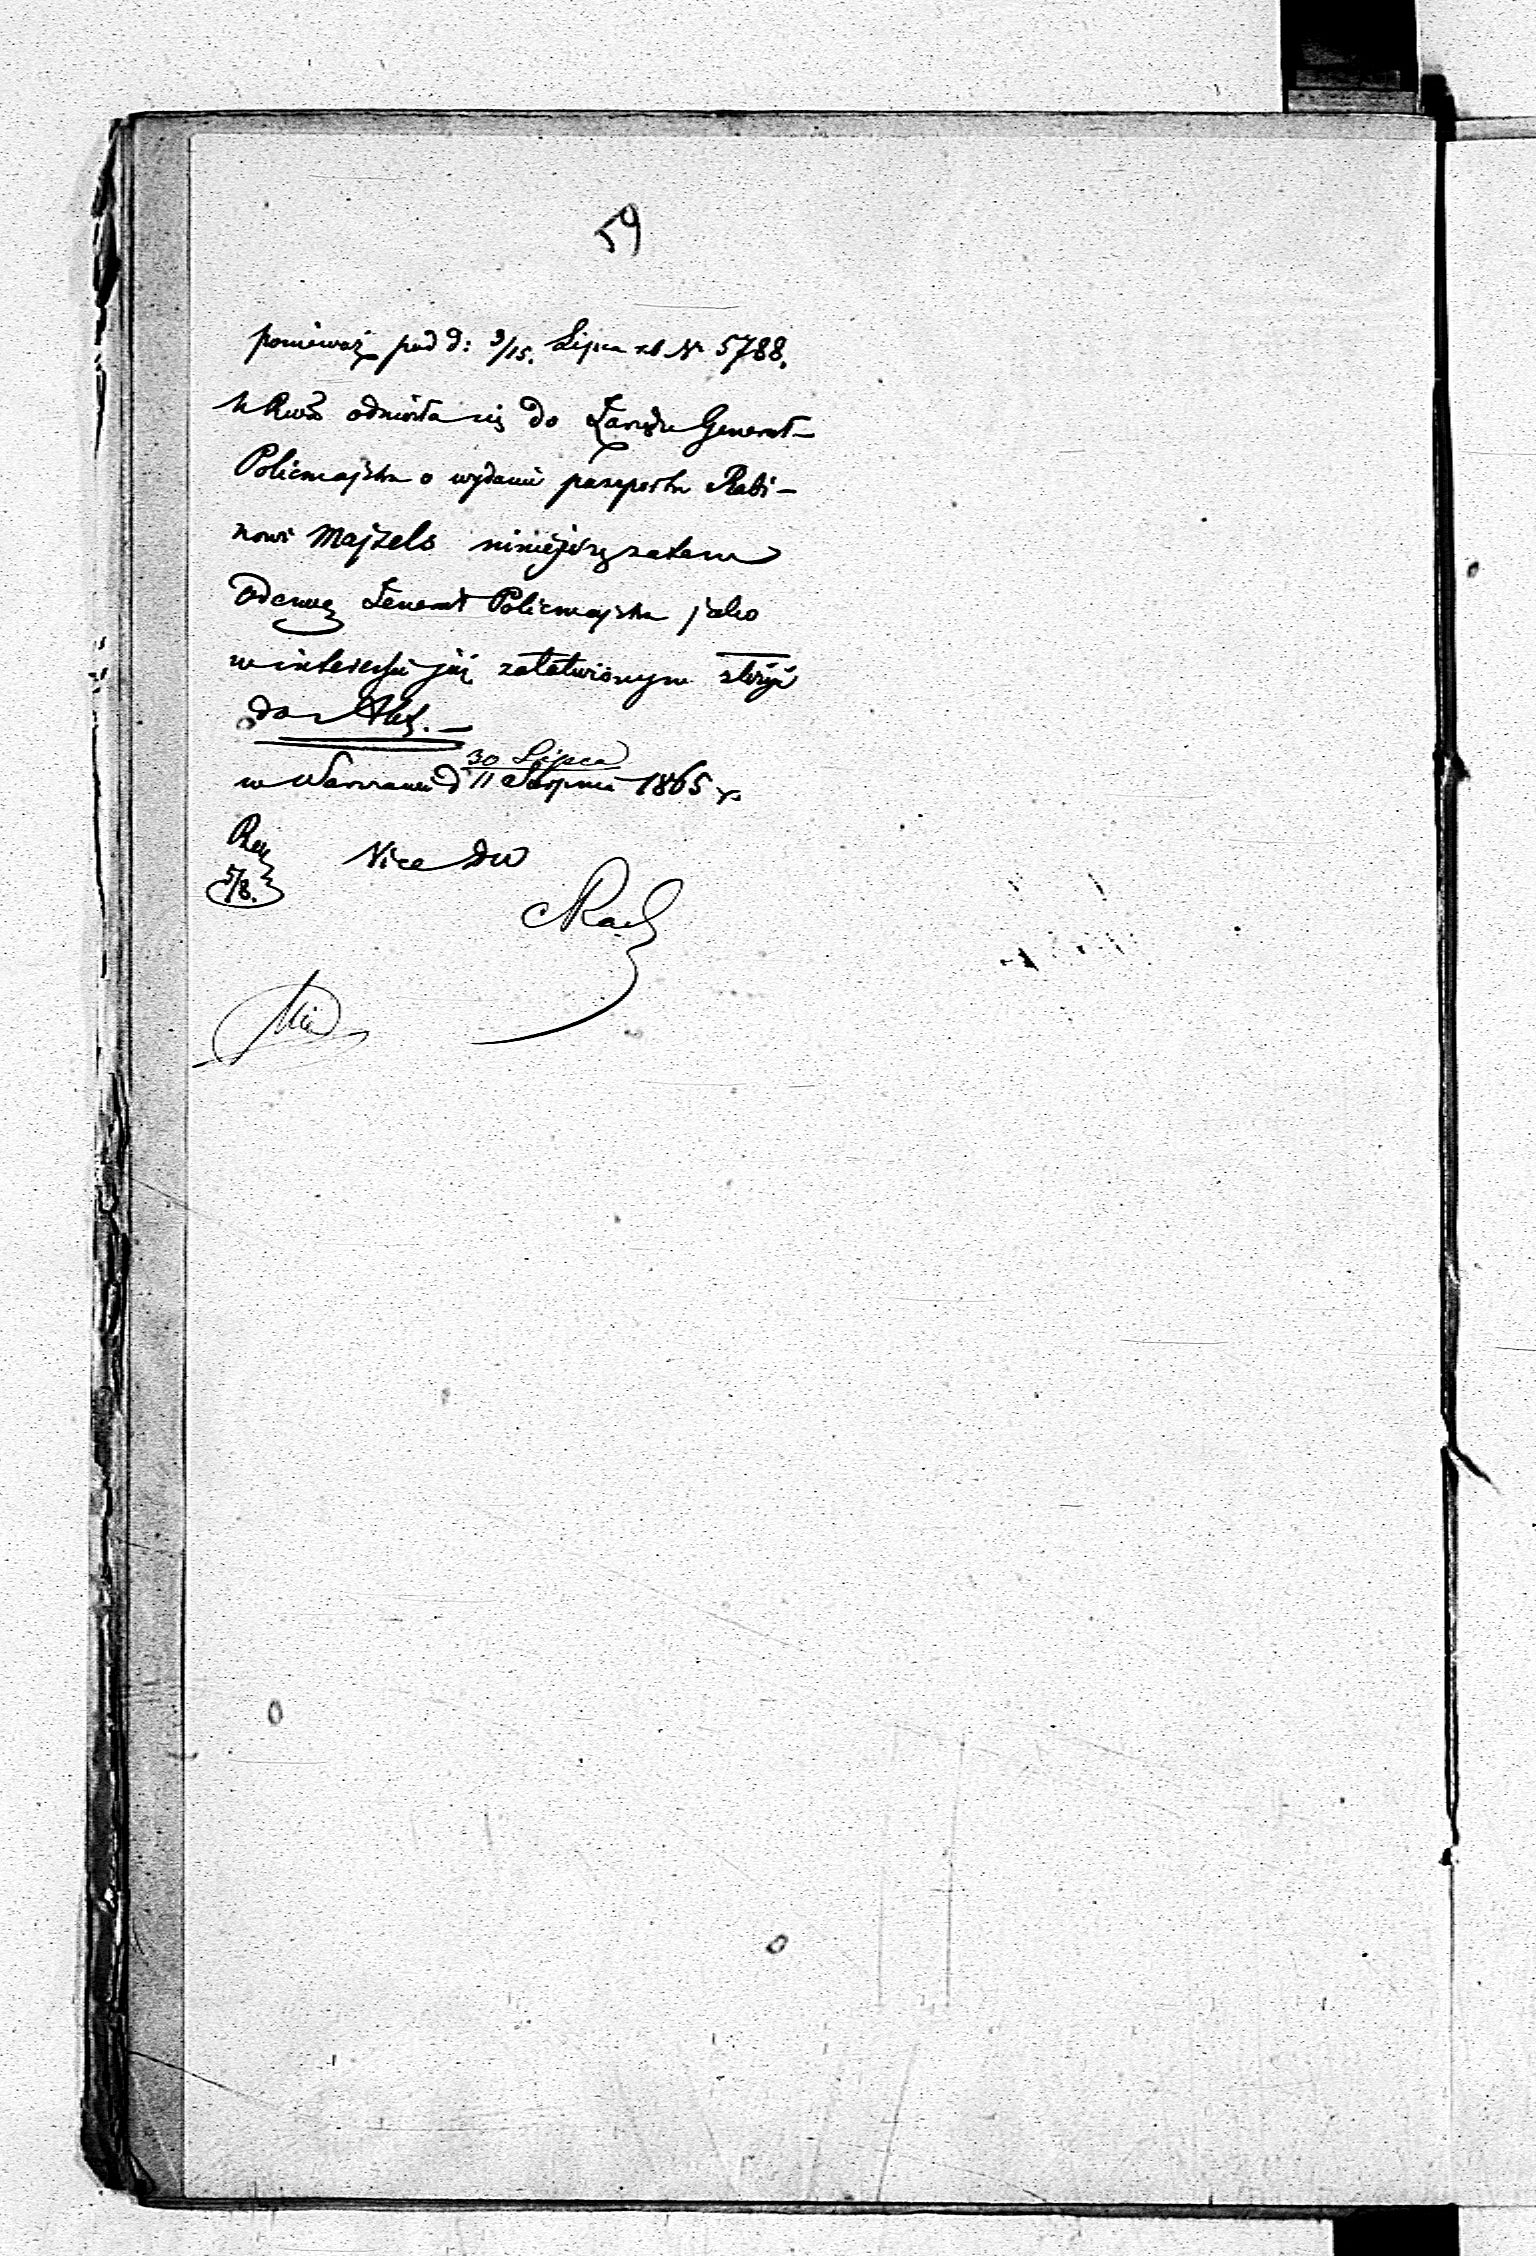 59
ponieważ pod d: 3/15. Lipca rb Nr 5788.
odniosła się do Zarządu Generał
Policmajstra o wydanie paszportu Rabi-
nowi Majzels niniejszą zatem
Odezwę Generał Policmajstra jako
w interesie już załatwionym złożyć
do Akt. —
30 Lipca
w Warszawie d 11 Sierpnia 1865 r
5/8.
Vice